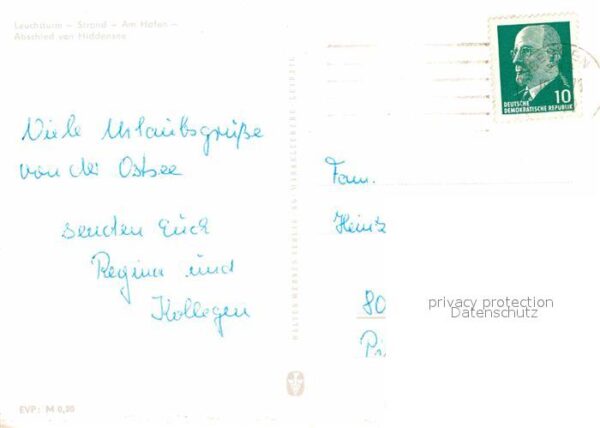 Leuchtturm – Strand – Am Hafen –
Abschied von Hiddensee
DEUTSCHE
DEMOKRATISCHE REPUBLIK
10
Viele Urlaubsgrüße
von der Ostsee
senden Euch
Regina und
Kollegen
Fam.
Heinz
80
privacy protection
Datenschutz
EVP: M 0,20